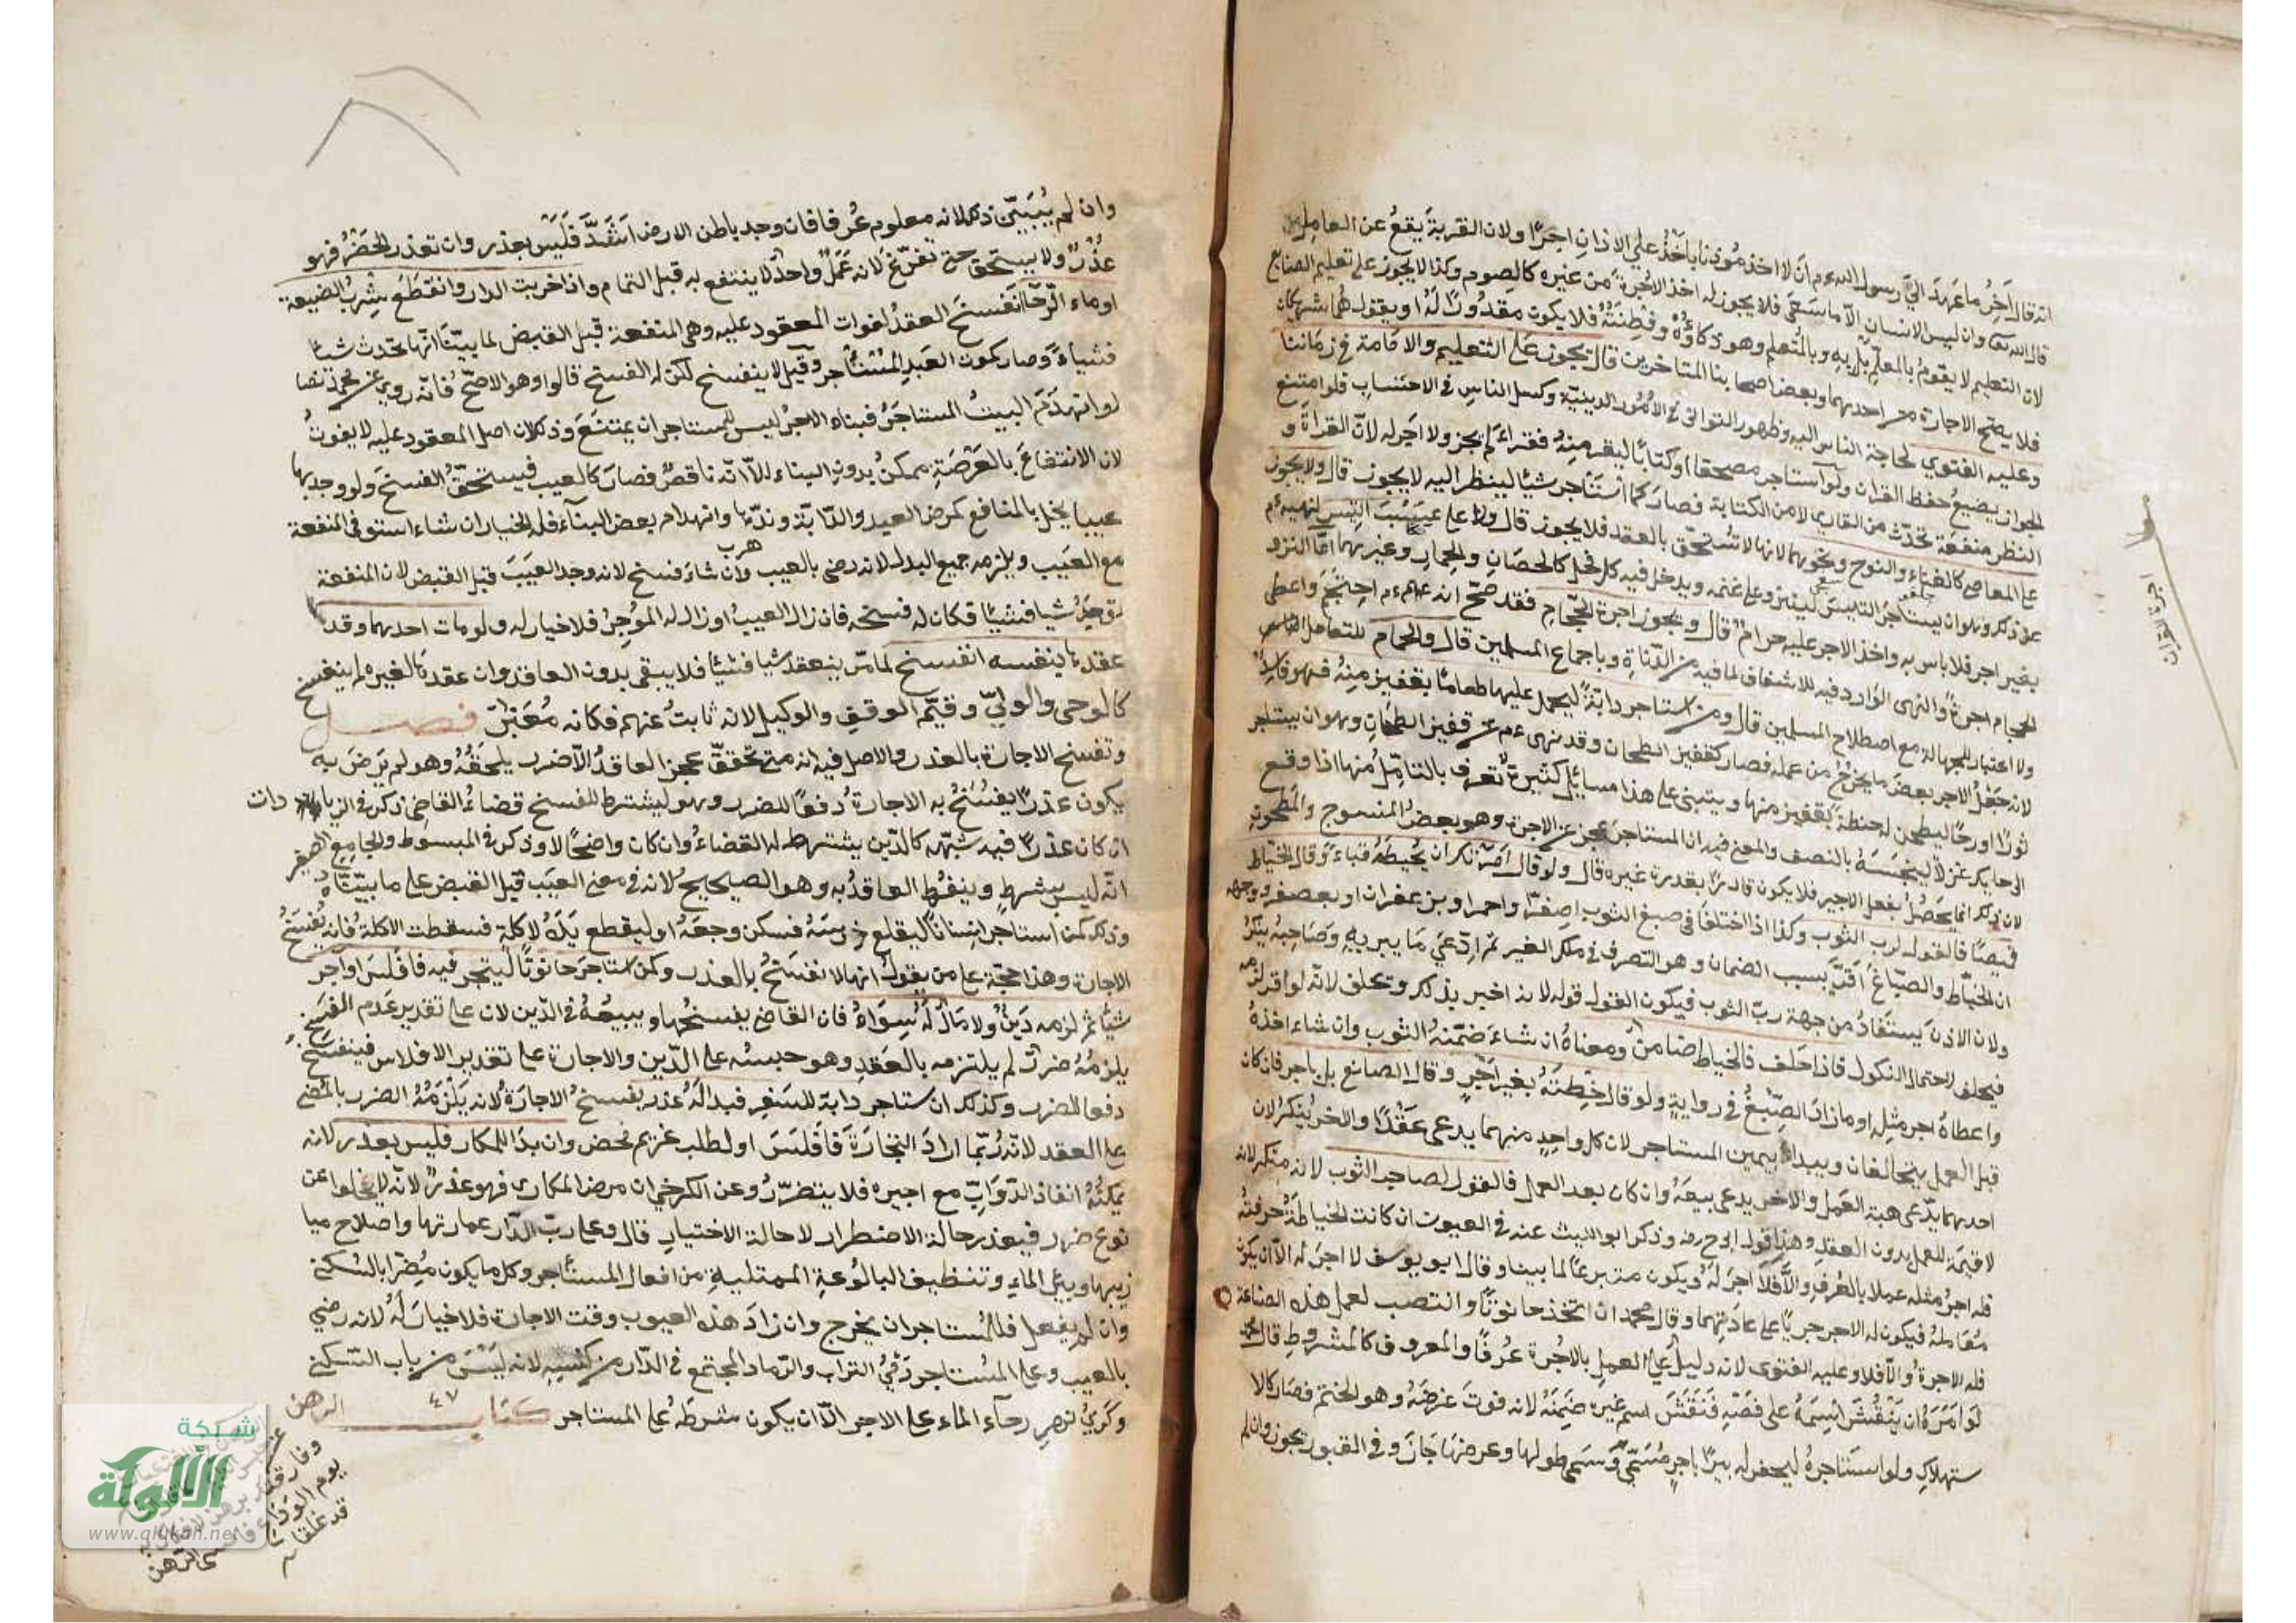 انه قال آخر ما عهد اليّ رسول الله ءم ان لا اخذ مؤذنا ياخذ على الاذان اجرًا ولان القربة يقع عن العامل
قال الله تعا وان ليس للانسان الّا ما سَعَى فلا يجوز له اخذ الاجرة من غيره كالصوم وكذا لا يجوز على تعليم الصنايع
لان التعليم لا يقوم بالمعلّم بل به وبالمتعلم وهو ذكاؤُهُ وفِطنَتُهُ فلا يكون مقدُورًا لَهُ او يقول هما شريكان
فلا يصحّ الاجارة من احديهما وبعض اصحابنا المتاخرين قال يجوز على التعليم والامامة في زماننا
وعليه الفتوى لحاجة الناس اليه وظهور التواني في الامُور الدينيّة وكسل الناس في الاحتساب فلو امتنع
الجواز يضيع حفظ القران ولو استاجر مصحفا او كتابًا ليقر منهُ فقراءَ لم يجز ولا اجر له لانّ القراة و
النظر منفعة تحدث من القاري لا من الكتابة فصار كما استَأجر شيًا لينظر اليه لا يجوز قال ولا يجوز
على المعاصي كالغناءِ والنوح ونحوهما لانها لا تُستحقّ بالعقد فلا يجوز قال ولا على عَسْبَ التيس لنهيه ءم
عن ذكر وهو ان يستاجر التيس لينز وعلى غنمه ويدخل فيه كل فحل كالحصَانِ والحمار وغيرهما امّا النزو
بغير اجر فلا باس به واخذ الاجر عليه حرام قال ويجوز اجرة الحجّام فقد صحّ انه ءم احتَجَمَ واعطى
الحجام اجرةً والنهى الوارد فيه للاشفاف لما فيه من الدّناءةِ وباجماع المسلمين قال والحمام للتعامل الناس
ولا اعتبار للجهالة مع اصطلاح المسلمين قال ومن استاجر دابّةً ليحمل عليها طعامًا بقفيز منهُ فهو فاسدٌ
لانه جَعْلُ الاجر بعضَ ما يخرج من عمله فصار كقفيز الطحان وقد نهى ءم عن قفيز الطحّانِ وهو ان يستاجر
ثورًا او رحًا ليطحن له حنطة بقفيز منها ويبتنى على هذا مسائل كثيرة تُعرف بالتامّل منها اذا دفع
الى حايك غزلًا لينسجَهُ بالنصف والمعنى فيه ان المستاجر عجز عن الاجرة وهو بعض المنسوج والمطحون
لان ذلك انما يحصُل بفعل الاجير فلا يكون قادرًا بقدرة غيره قال ولو قال امَرْتك ان تُخيطَهُ قباءً وقال الخياط
قميصًا فالقول لرب الثوب وكذا اذا اختلفا في صبغ الثوب اصفرًا واحمر او بزعفران او بعصفر ووجهه
ان الخيّاط والصبّاغ اقرّ بسبب الضمان وهو التصرف في ملك الغير ثم ادّعى ما يبريه وصَاحِبهُ ينكرُ
ولان الاذن يستفادُ من جهة ربّ الثوب فيكون القول قوله لانه اخبر بذلك وتحلف لانّه لو اقر لزمه
فيحلف لاحتمال النكول فاذا حلف فالخياط ضامن ومعناهُ ان شاءَ ضمّنهُ الثوب وان شاء اخذهُ
واعطاهُ اجر مثِله او ما زادَ الصِّبْغُ في روايةٍ ولو قال خِطتَهُ بغير اجرٍ وقال الصانع بل باجر فان كان
قبل العمل يتحالفان ويبداءُ بيمين المستاجر لان كل واحدٍ منهما يدعى عَقْدًا والاخر يُنكرُ لان
احدهما يدّعى هبة العَمل والاخر يدعى بيعَهُ وان كان بعد العمل فالقول لصاحب الثوب لانه منكر لانه
لا قيمَة للعمل بدون العقد وهذا قول ابو ح رضه وذكر ابو الليث عنه في العيون ان كانت الخياطةُ حرفتهُ
فله اجرُ مثله عملا بالعُرف والّا فلَا اجرَ لَهُ ويكون متبرعًا لما بينا وقال ابو يوسف لا اجرَ له الّا ان يكون
مُعَاملهُ فيكون له الاجر جريًا على عادتهما وقال محمد ان اتّخذ حانوتًا وانتصب لعمل هذه الصناعة
فله الاجرة والّا فلا وعليه الفتوى لانه دليل على العمل بالاجُرة عُرفًا والمعروف كالمشروط قال
لو امَرَهُ ان يَنْقُشَ اسمَهُ على فصّهِ فنَقَشَ اسم غيره ضمِنَهُ لانه فوتَ غرضَهُ وهو الختم فصار كالا
ستهلاكِ ولو استَاجرهُ ليحفر له بيرًا باجرٍ مُسَمّىً وسَمى طولها وعرضهَا جَازَ وفي القبور تجوز وان لم
اجرة القران
وان لم يُبَيّن ذلك لانه معلوم عُرفا فان وجد باطن الارض اشَدَّ فَلَيسَ بعذر وان تعذر الحَفرُ فهو
عُذرٌ ولا يستحق حتى تفرّغ لانه عَمَلٌ واحدٌ لا ينتفع به قبل التمام واذا خربت الدار وانقطَعَ شِربُ الضيعة
او ماء الرّحَا انفَسَخَ العقدُ لفوات المعقود عليه وهى المنفعة قبل القبض لما بيّنا انّها تحدث شيًا
فشياءً وصار كموت العَبدِ المُستاجر وقيل لا ينفسخ لكن له الفسخ قالوا وهو الاصحّ فانّه روى عن محمد نصا
لو انهدَمَ البيتُ المستاجَرُ فبناه الاجرُ ليس للمستاجر ان يمتنعَ وذلك لان اصل المعقود عليه لا يفوتُ
لان الانتفاعَ بالعَرْصَةِ ممكنٌ بدون البناء الّا انّه ناقصٌ فصارَ كالعيب فيستحقّ الفسخَ ولو وجد بها
عيبا يخل بالمنافع كمرض العبد والدّابّة وندّها وانهدام بعض البناء فله الخيار ان شاء استوفى المنفعة
مع العَيب ويلزمه جميع البدل لانه رضى بالعيب وان شاءَ فسخ لانه وجد العَيبَ قبل القبض لان المنفعة
هرب
توجَدُ شيا فشيًا فكان له فسخه فان زال العيبُ او ازاله الموجِرُ فلا خيار له ولو مات احدهما وقد
عقدها لنفسه انفسخ لما مرّ ينعقد شيا فشيًا فلا يبقى بدون العاقد وان عقدها لغيره لم ينفسخ
كالوصى والوليّ وقيّم الوقف والوكيل لانه نائبٌ عنهم فكانه مُعَبّرٌ فصل
وتفسخ الاجارة بالعذر والاصل فيه انه متى تحققّ عجز العاقدُ الّا ضرر يلحَقُهُ وهو لم يَرضَ به
يكون عذرًا يفسَخُ به الاجارة دفعًا للضرر وهو ليشترط للفسخ قضاءُ القاضى ذكر في الزيادات
ان كان عذرًا فيه شبهه كالدّين يشترط له القضاءُ وان كان واضحًا لا وذكر في المبسوط والجامع الصغير
انّه ليس بشرطٍ وينفرد العاقدُ به وهو الصحيحُ لانه في معنى العَيب قبل القبض على ما بيّنّاه
وذلك كمن استاجر انسانًا ليقلع ضرسَهُ فسكن وجعَهُ او ليقطع يدَهُ لاكلةٍ فسقطت الاكلةُ فانه يُفسَخُ
الاجارة وهذا حجّة على من يقول انها لا تفسَخُ بالعذر وكمن استاجرَ حانوتًا ليتجر فيه فافلسَ او آجر
شيًا ثم لزمه دَينٌ ولا مَالٌ لَهُ سِوَاهُ فان القاضى يفسخُها ويبيعُهُ في الدّين لان على تقدير عَدم الفسخ
يلزمُهُ ضررٌ لم يلتزمه بالعَقد وهو حبسُه على الدّين والاجارة على تقدير الافلاس فينفسخُ
دفعا للضرر وكذلك ان استاجر دابّة للسَفر فبدا لَهُ عذر يفسخ الاجارَةُ لانه يَلْزَمُهُ الضرر بالمُضى
على العقد لانّه رُبّما ارادَ التجارَة فافلَسَ او لطلب غريم فحض وان بدَا للمكار فليس بعذر لانه
يمكنُهُ انفاذ الدّوَابِّ مع اجيره فلا يتضرّرُ وعن الكرخى ان مرض المكارى فهو عذرٌ لانّه لا يخلوا عن
نوع ضرر فيعذر حالة الاضطرار لا حالة الاختيار قال وعلى ربّ الدّار عمارتها واصلاح ميا
زيبها وبير الماءِ وتنظيف البالُوعةِ الممتلية من افعال المستأجر وكل ما يكون مُضِرًا بالسُكنى
وان لم يفعل فللمُستاجر ان يخرج وان زادَ هذه العيوب وقت الاجارة فلا خيارَ لَهُ لانه رضى
بالعيب وعلى المُستاجر رَمْيُ التراب والرّماد المجتمع في الدّار من كنسِهِ لانه لَيسَ من باب السّكنى
وكَريُ نهرِ رحاء الماء على الاجر الّا ان يكون شرطَهُ على المستاجر كتاب الرهن
٤٧
يوم الوداع
شبكة
الألوكة
www.alukah.net